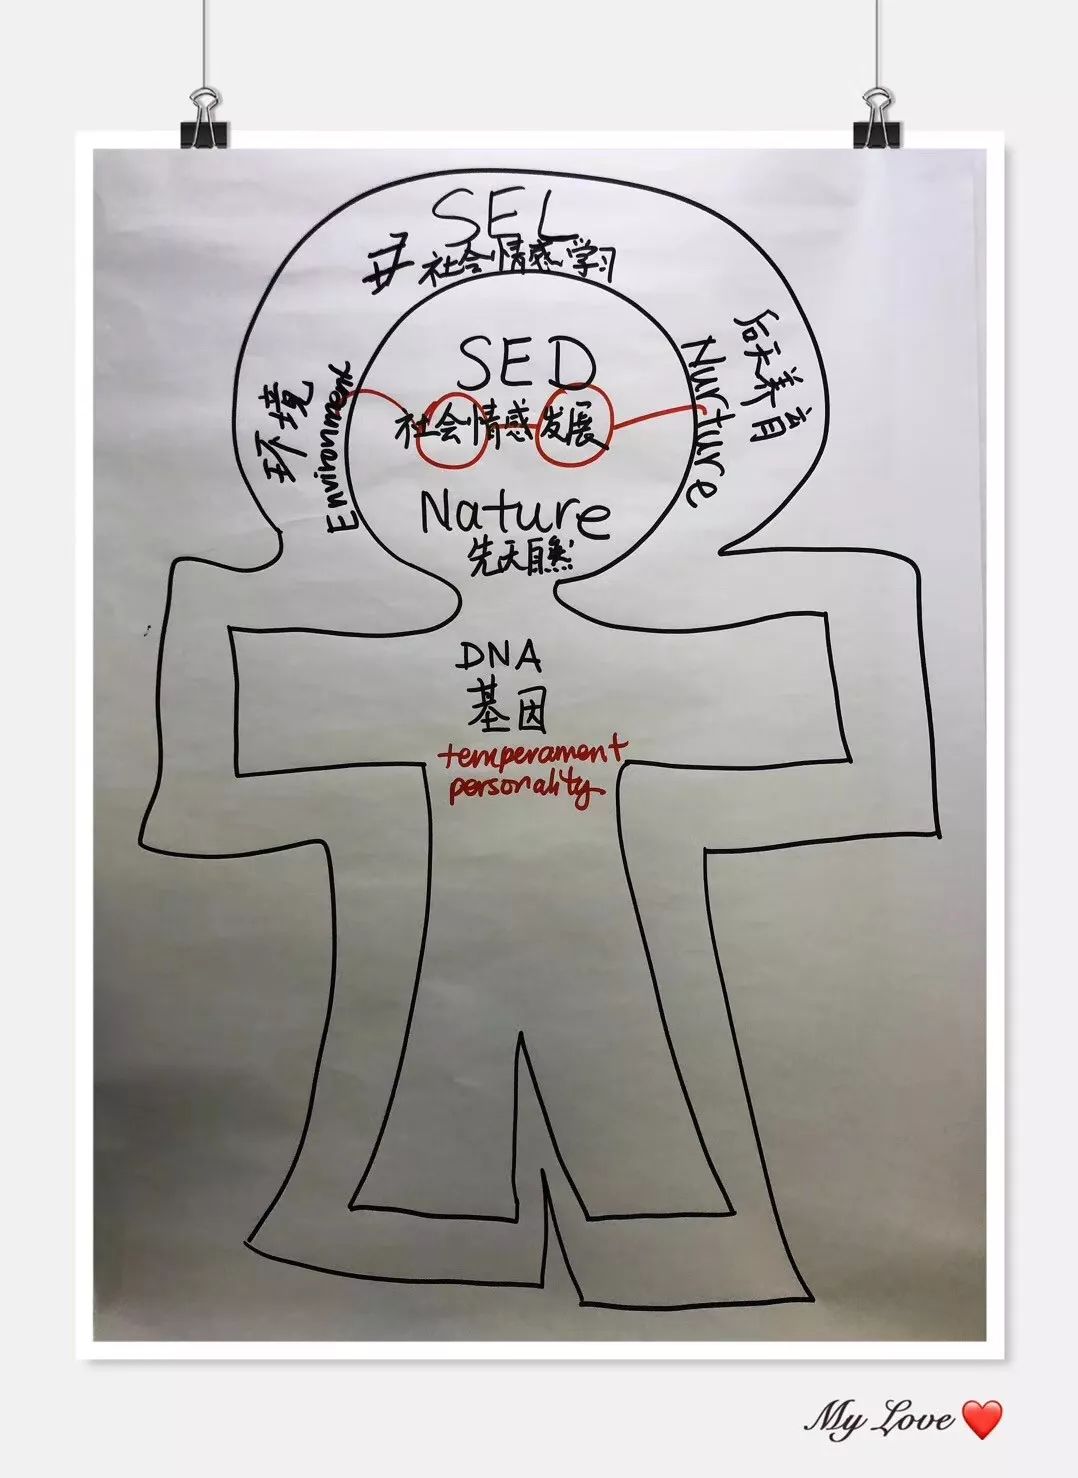 SEL
社会情感学习
环境
Environment
SED
社会情感发展
Nature
先天自然
Nurture
后天养育
DNA
基因
temperament
personality
My Love ❤️